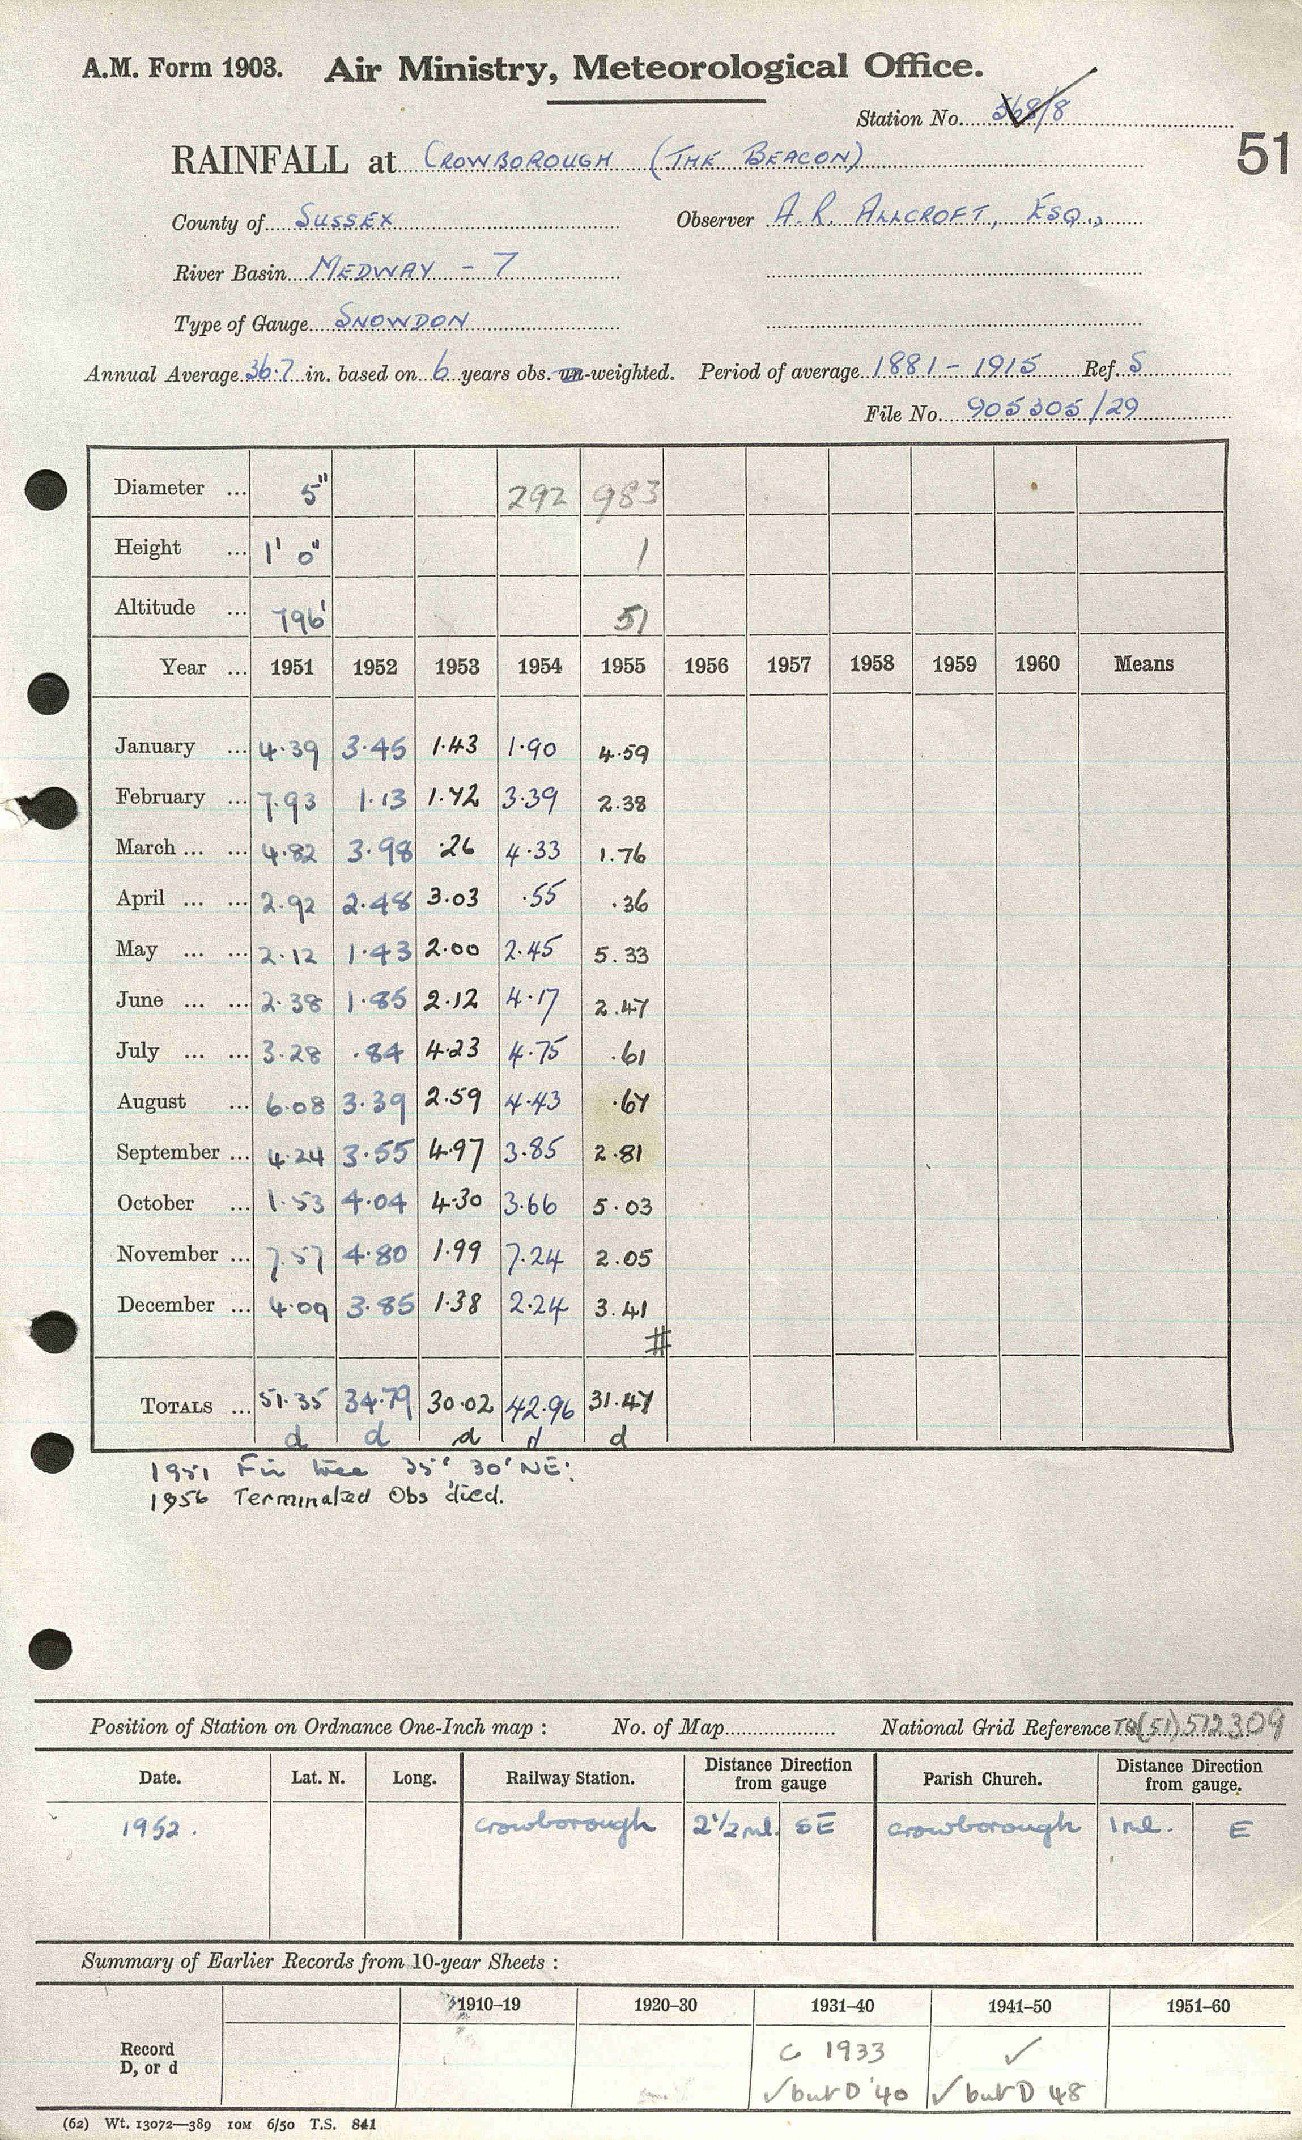 A.M. Form 1903. Air Ministry, Meteorological Office.
Station No. 568/8
51
RAINFALL at CROWBOROUGH (THE BEACON)
County of SUSSEX Observer A. R. ALLCROFT, ESQ.,
River Basin MEDWAY - 7
Type of Gauge SNOWDON
Annual Average 36.7 in. based on 6 years obs. un-weighted. Period of average 1881 - 1915 Ref. S
File No. 905305/29
Diameter ... 5" 292 983
Height ... 1' 0" 1
Altitude ... 796' 51
Year ... 1951 1952 1953 1954 1955 1956 1957 1958 1959 1960 Means
January ... 4.39 3.45 1.43 1.90 4.59
February ... 7.93 1.13 1.72 3.39 2.38
March ... ... 4.82 3.98 .26 4.33 1.76
April ... ... 2.92 2.48 3.03 .55 .36
May ... ... 2.12 1.43 2.00 2.45 5.33
June ... ... 2.38 1.85 2.12 4.17 2.47
July ... ... 3.28 .84 4.23 4.75 .61
August ... 6.08 3.39 2.59 4.43 .67
September ... 4.24 3.55 4.97 3.85 2.81
October ... 1.53 4.04 4.30 3.66 5.03
November ... 7.57 4.80 1.99 7.24 2.05
December ... 4.09 3.85 1.38 2.24 3.41
#
TOTALS ... 51.35 34.79 30.02 42.96 31.47
d d d d d
1951 Fir tree 35', 30' NE.
1956 Terminated Obs died.
Position of Station on Ordnance One-Inch map : No. of Map National Grid Reference TQ(51)512309
Date. Lat. N. Long. Railway Station. Distance Direction from gauge Parish Church. Distance Direction from gauge.
1952. Crowborough 2 1/2 ml. SE Crowborough 1 ml. E
Summary of Earlier Records from 10-year Sheets :
1910–19 1920–30 1931–40 1941–50 1951–60
Record D, or d C 1933 ✓
✓ but D '40 ✓ but D 48
(62) Wt. 13072—389 10M 6/50 T.S. 841